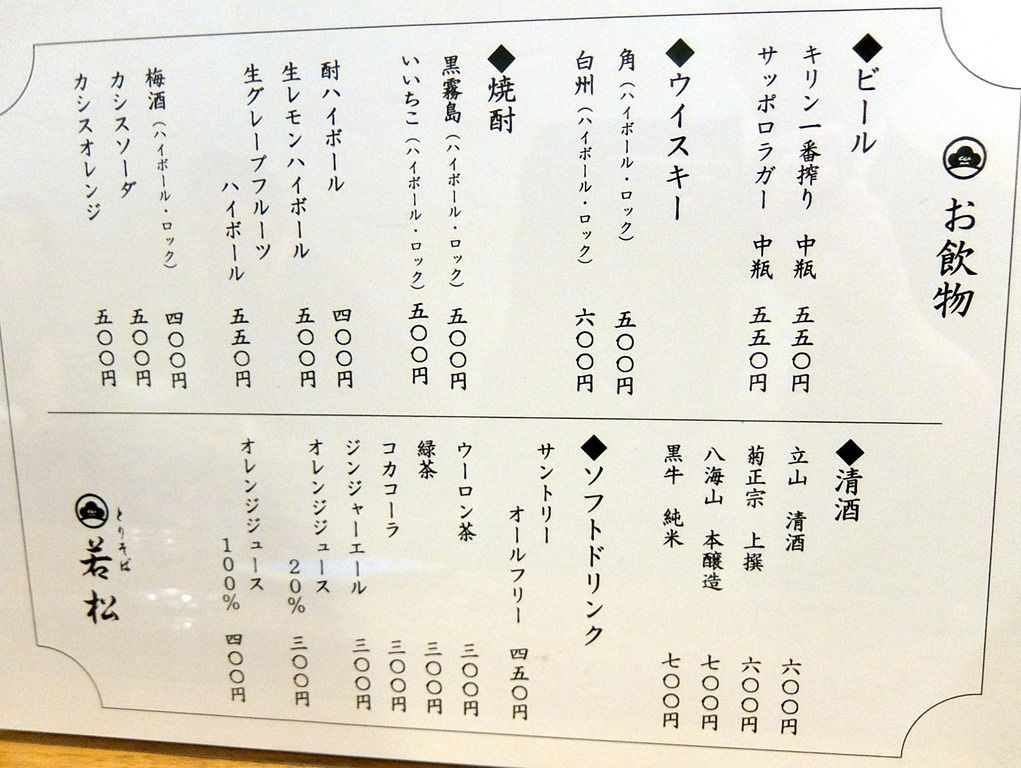 お飲物
◆ビール
キリン一番搾り 中瓶 五五〇円
サッポロラガー 中瓶 五五〇円
◆ウイスキー
角（ハイボール・ロック） 五〇〇円
白州（ハイボール・ロック） 六〇〇円
◆焼酎
黒霧島（ハイボール・ロック） 五〇〇円
いいちこ（ハイボール・ロック） 五〇〇円
酎ハイボール 四〇〇円
生レモンハイボール 五〇〇円
生グレープフルーツ
ハイボール 五五〇円
梅酒（ハイボール・ロック） 四〇〇円
カシスソーダ 五〇〇円
カシスオレンジ 五〇〇円
◆清酒
立山 清酒 六〇〇円
菊正宗 上撰 六〇〇円
八海山 本醸造 七〇〇円
黒牛 純米 七〇〇円
◆ソフトドリンク
サントリー
オールフリー 四五〇円
ウーロン茶 三〇〇円
緑茶 三〇〇円
コカコーラ 三〇〇円
ジンジャーエール 三〇〇円
オレンジジュース
20% 三〇〇円
オレンジジュース
100% 四〇〇円
とりそば
若松